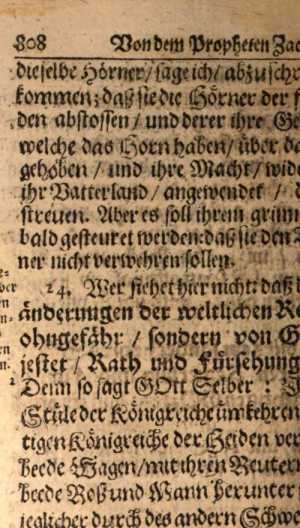 808 Von dem Propheten Zac
dieselbe Hörner / sage ich / abzuschr
kommen; daß sie die Hörner der
den abstossen / und derer ihre Ge
welche das Horn haben / über da
gehoben / und ihre Macht / wid
ihr Vatterland / angewendet / d
streuen. Aber es soll ihrem grim
bald gesteuret werden: daß sie den
ner nicht verwehren sollen.
24. Wer siehet hier nicht: daß d
änderungen der weltlichen Re
ohngefähr / sondern von G
jestet / Rath und Fürsehung
Denn so sagt GOtt Selber : J
Stüle der Königreiche ümkehren
tigen Königreiche der Heiden ver
beede Wagen / mit ihren Reutern
beede Roß und Mann herunter
jeglicher durch des andern Schw